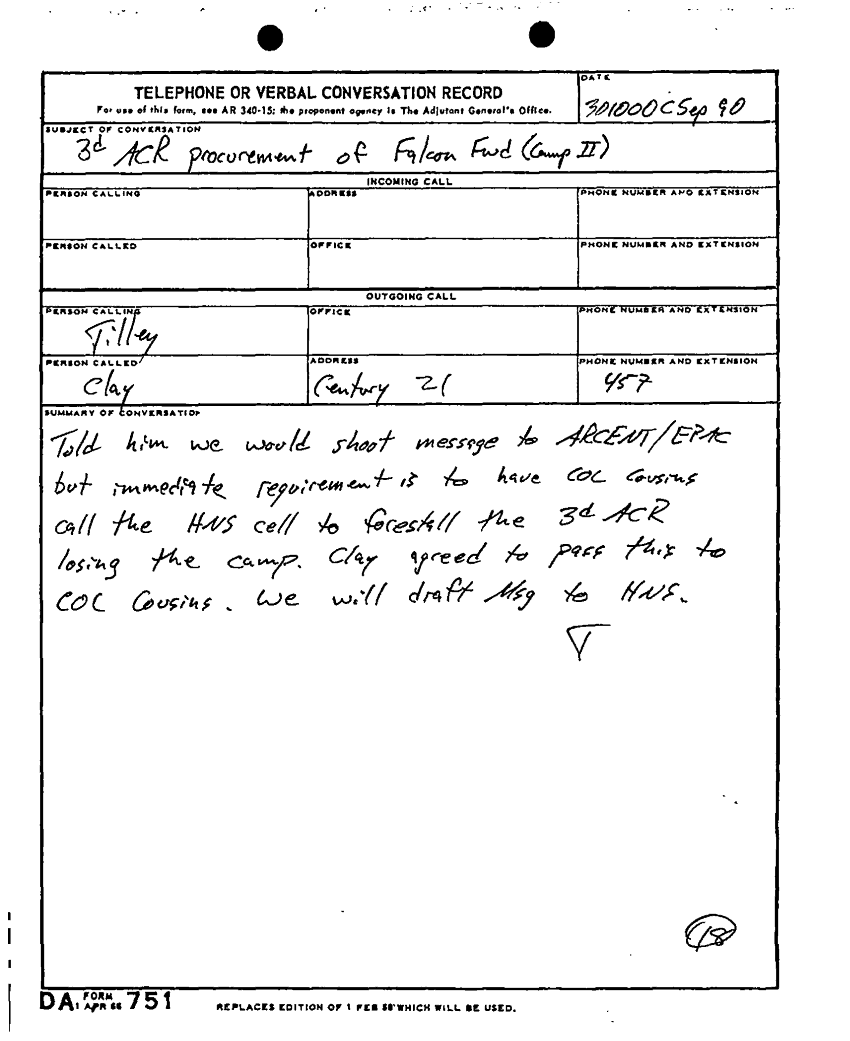 TELEPHONE OR VERBAL CONVERSATION RECORD
For use of this form, see AR 340-15; the proponent agency is The Adjutant General's Office.
DATE
301000C Sep 90
SUBJECT OF CONVERSATION
3d ACR procurement of Falcon Fwd (Camp II)
INCOMING CALL
PERSON CALLING ADDRESS PHONE NUMBER AND EXTENSION
PERSON CALLED OFFICE PHONE NUMBER AND EXTENSION
OUTGOING CALL
PERSON CALLING OFFICE PHONE NUMBER AND EXTENSION
Tilley
PERSON CALLED ADDRESS PHONE NUMBER AND EXTENSION
Clay Century 21 457
SUMMARY OF CONVERSATION
Told him we would shoot message to ARCENT/EPAC
but immediate requirement is to have COL Cousins
call the HNS cell to forestall the 3d ACR
losing the camp. Clay agreed to pass this to
COL Cousins. We will draft Msg to HNS.
T
18
DA FORM 751
1 APR 66
REPLACES EDITION OF 1 FEB 58 WHICH WILL BE USED.